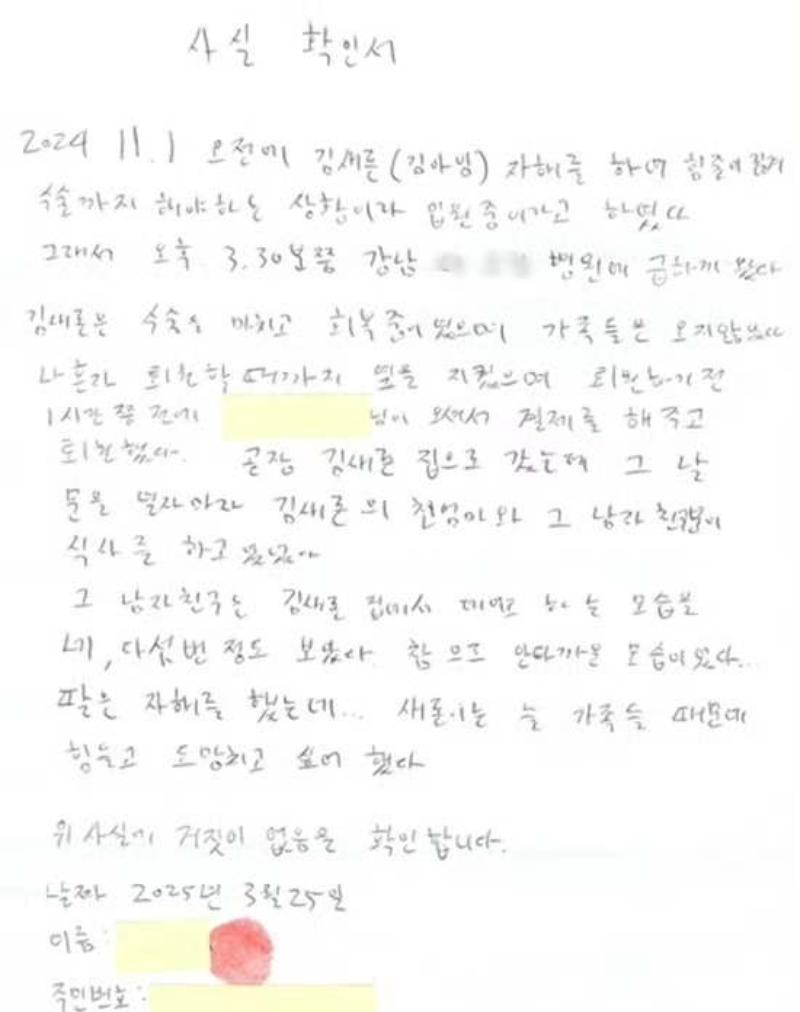 사실 확인서
2024 11.1 오전에 김새론(김아임) 자해를 하여 힘줄이
수술까지 해야하는 상황이라 입원중이라고 하였다
그래서 오후 3.30분쯤 강남 병원에 급하게 갔다
김새론은 수술을 마치고 회복중이였으며 가족들은 오지않았다
나혼자 퇴원할때까지 옆을 지켰으며 퇴원하기전
1시간 쯤 전에 님이 오셔서 결제를 해주고
퇴원했다. 곧장 김새론 집으로 갔는데 그 날
문을 열자마자 김새론의 친엄마와 그 남자친구분이
식사를 하고 있었다
그 남자친구는 김새론 집에서 데이트 하는 모습을
네, 다섯번 정도 보았다 참 으로 안타까운 모습이였다...
딸은 자해를 했는데... 새론이는 늘 가족들 때문에
힘들고 도망치고 싶어 했다
위 사실에 거짓이 없음을 확인합니다.
날짜 2025년 3월 25일
이름:
주민번호: